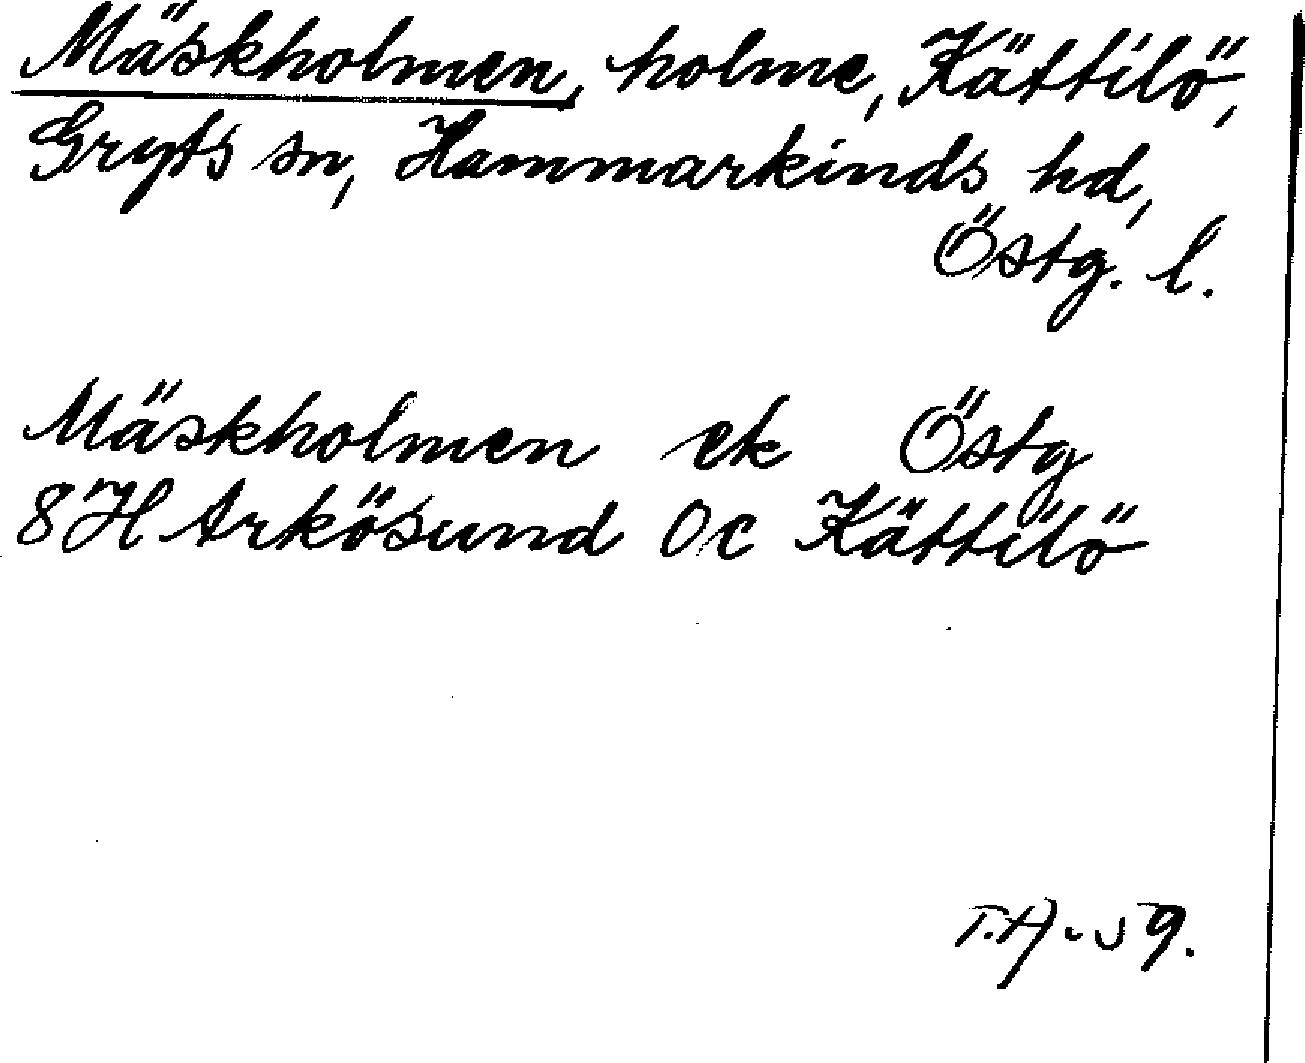 Mäskholmen, holme, Kättilö,
Gryts sn, Hammarkinds hd,
Östg. l.
Mäskholmen ek Östg
8H Arkösund 0c Kättilö
T.H. 59.